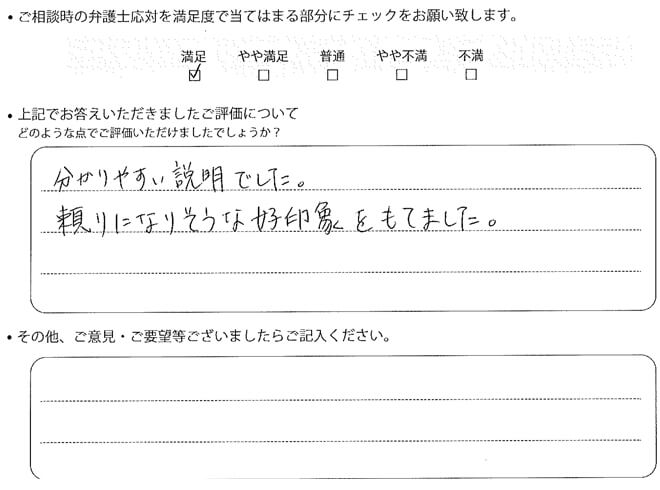 ・ご相談時の弁護士応対を満足度で当てはまる部分にチェックをお願い致します。
満足 やや満足 普通 やや不満 不満
☑ □ □ □ □
・上記でお答えいただきましたご評価について
どのような点でご評価いただけましたでしょうか？
分かりやすい説明でした。
頼りになりそうな好印象をもてました。
・その他、ご意見・ご要望等ございましたらご記入ください。